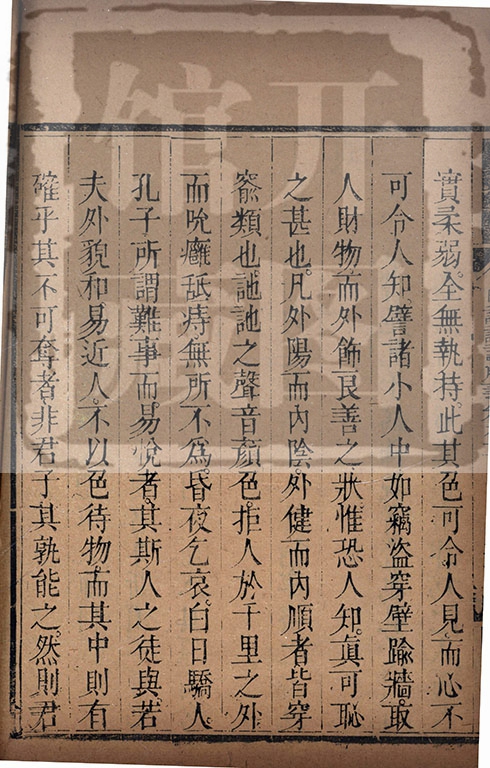 實柔弱。全無執持。此其色可令人見。而心不
可令人知。譬諸小人中如竊盜穿壁踰牆。取
人財物而外飾良善之狀惟恐人知。真可恥
之甚也。凡外陽而內陰。外健而內順者皆穿
窬類也。訑訑之聲音顏色。拒人於千里之外
而吮癰舐痔無所不為。昏夜乞哀。白日驕人。
孔子所謂難事而易悅者。其斯人之徒與。若
夫外貌和易近人。不以色待物。而其中則有
確乎其不可奪者。非君子其孰能之。然則君